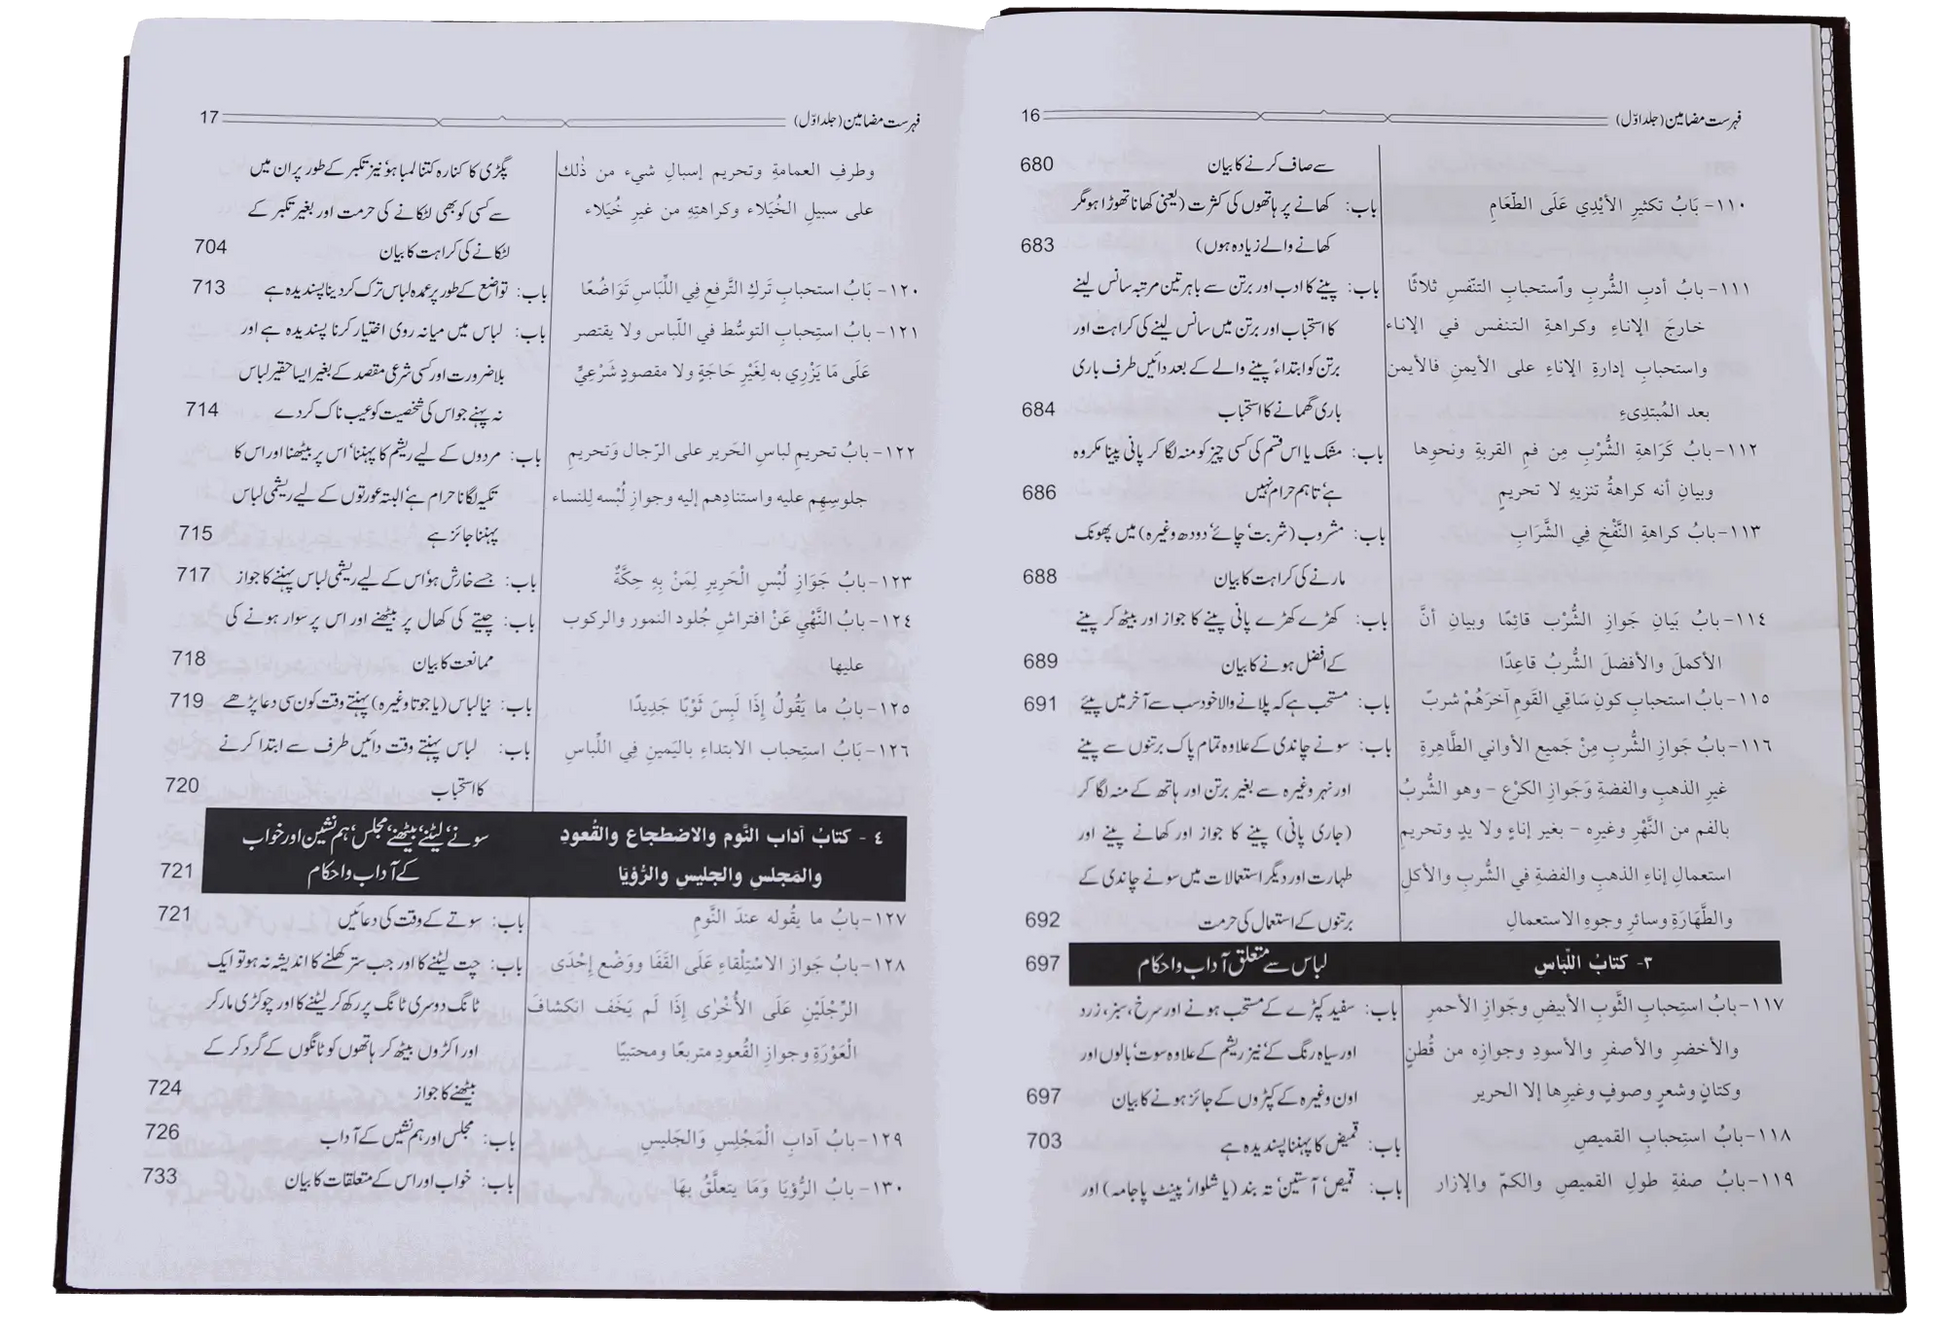 فہرست مضامین (جلد اوّل) 16
سے صاف کرنے کا بیان 680
١١٠- بَابُ تكثيرِ الأَيْدِي عَلَى الطَّعَامِ باب: کھانے پر ہاتھوں کی کثرت (یعنی کھانا تھوڑا ہو مگر
کھانے والے زیادہ ہوں) 683
١١١- بابُ أدبِ الشُّربِ واَستحبابِ التنّفسِ ثلاثًا باب: پینے کا ادب اور برتن سے باہر تین مرتبہ سانس لینے
خارجَ الإناءِ وكراهةِ التنفس في الإناء کا استحباب اور برتن میں سانس لینے کی کراہت اور
واستحبابِ إدارةِ الإناءِ على الأيمنِ فالأيمن برتن کو ابتداءً پینے والے کے بعد دائیں طرف باری
بعد المُبتدِىءِ باری گھمانے کا استحباب 684
١١٢- بابُ كَرَاهةِ الشُّرْبِ مِن فمِ القربةِ ونحوِها باب: مشک یا اس قسم کی کسی چیز کو منہ لگا کر پانی پینا مکروہ
وبيانِ أنه كراهةُ تنزيهِ لا تحريمٍ ہے‘ تاہم حرام نہیں 686
١١٣- بابُ كراهةِ النَّفْخِ فِي الشَّرَابِ باب: مشروب (شربت‘ چائے‘ دودھ وغیرہ) میں پھونک
مارنے کی کراہت کا بیان 688
١١٤- بابُ بَيَانِ جَوازِ الشُّرْب قائِمًا وبيانِ أنَّ باب: کھڑے کھڑے پانی پینے کا جواز اور بیٹھ کر پینے
الأكملَ والأفضلَ الشُّربُ قاعِدًا کے افضل ہونے کا بیان 689
١١٥- بابُ استحبابِ كونِ سَاقِي القَومِ آخرَهُمْ شربً باب: مستحب ہے کہ پلانے والا خود سب سے آخر میں پیئے 691
١١٦- بابُ جَوازِ الشُّربِ مِنْ جَميعِ الأواني الطَّاهِرةِ باب: سونے چاندی کے علاوہ تمام پاک برتنوں سے پینے
غيرِ الذهبِ والفضةِ وَجَوازِ الكرْع - وهو الشُّربُ اور نہر وغیرہ سے بغیر برتن اور ہاتھ کے منہ لگا کر
بالفم من النَّهْرِ وغيرِه - بغير إناءٍ ولا يدٍ وتحريمِ (جاری پانی) پینے کا جواز اور کھانے پینے اور
استعمالِ إناءِ الذهبِ والفضةِ في الشُّربِ والأكلِ طہارت اور دیگر استعمالات میں سونے چاندی کے
والطَّهَارَةِ وسائرِ وجوهِ الاستعمالِ برتنوں کے استعمال کی حرمت 692
٣- كتابُ اللّبَاسِ لباس سے متعلق آداب و احکام 697
١١٧- بابُ استِحبابِ الثَّوبِ الأبيضِ وجَوازِ الأحمرِ باب: سفید کپڑے کے مستحب ہونے اور سرخ، سبز، زرد
والأخضرِ والأصفرِ والأسودِ وجوازِه من قُطنٍ اور سیاہ رنگ کے‘ نیز ریشم کے علاوہ سوت‘ بالوں اور
وكتانٍ وشعرٍ وصوفٍ وغيرِها إلا الحرير اون وغیرہ کے کپڑوں کے جائز ہونے کا بیان 697
١١٨- بابُ استِحبابِ القميصِ باب: قمیض کا پہننا پسندیدہ ہے 703
١١٩- بابُ صفةِ طولِ القميصِ والكمّ والإزار باب: قمیص‘ آستین‘ تہ بند (یا شلوار‘ پینٹ پاجامہ) اور
فہرست مضامین (جلد اوّل) 17
وطرفِ العمامةِ وتحريم إسبالِ شيء من ذٰلك پگڑی کا کنارہ کتنا لمبا ہو‘ نیز تکبر کے طور پر ان میں
على سبيلِ الخُيَلاء وكراهتِهِ من غيرِ خُيَلاء سے کسی کو بھی لٹکانے کی حرمت اور بغیر تکبر کے
لٹکانے کی کراہت کا بیان 704
١٢٠- بَابُ استحبابِ تَركِ التَّرفعِ فِي اللِّبَاسِ تَوَاضُعًا باب: تواضع کے طور پر عمدہ لباس ترک کر دینا پسندیدہ ہے 713
١٢١- بابُ استِحبابِ التوسُّط في اللّباس ولا يقتصر باب: لباس میں میانہ روی اختیار کرنا پسندیدہ ہے اور
عَلَى مَا يَزْرِي به لِغَيْرِ حَاجَةٍ ولا مقصودٍ شَرْعِيٍّ بلا ضرورت اور کسی شرعی مقصد کے بغیر ایسا حقیر لباس
نہ پہنے جو اس کی شخصیت کو عیب ناک کر دے 714
١٢٢- بابُ تحريمِ لباسِ الحَريرِ على الرّجالِ وَتحريمِ باب: مردوں کے لیے ریشم کا پہننا‘ اس پر بیٹھنا اور اس کا
جلوسِهِم عليه واستنادِهم إليه وجوازِ لُبْسه للنساء تکیہ لگانا حرام ہے‘ البتہ عورتوں کے لیے ریشمی لباس
پہننا جائز ہے 715
١٢٣- بابُ جَوَازِ لُبْسِ الْحَرِيرِ لِمَنْ بِهِ حِكَّةٌ باب: جسے خارش ہو‘ اس کے لیے ریشمی لباس پہننے کا جواز 717
١٢٤- بابُ النَّهْيِ عَنْ افتراشِ جُلود النمور والركوب باب: چیتے کی کھال پر بیٹھنے اور اس پر سوار ہونے کی
عليها ممانعت کا بیان 718
١٢٥- بابُ ما يَقُولُ إذَا لَبِسَ ثَوْبًا جَدِيدًا باب: نیا لباس (یا جوتا وغیرہ) پہنتے وقت کون سی دعا پڑھے 719
١٢٦- بَابُ استِحباب الابتداءِ باليَمينِ فِي اللِّباسِ باب: لباس پہنتے وقت دائیں طرف سے ابتدا کرنے
کا استحباب 720
٤ - كتابُ آداب النَّوم والاضطجاع والقُعودِ سونے‘ لیٹنے‘ بیٹھنے‘ مجلس‘ ہم نشین اور خواب
والمَجلسِ والجليسِ والرُّؤيَا کے آداب و احکام 721
١٢٧- بابُ ما يقُوله عندَ النَّومِ باب: سوتے کے وقت کی دعائیں 721
١٢٨- بابُ جَواز الاسْتِلْقاءِ عَلَى القَفَا ووَضْع إحْدَى باب: چت لیٹنے کا اور جب ستر کھلنے کا اندیشہ نہ ہو تو ایک
الرِّجْلَيْنِ عَلَى الأُخْرٰى إذَا لَم يَخَف انكشافَ ٹانگ دوسری ٹانگ پر رکھ کر لیٹنے کا اور چوکڑی مار کر
الْعَوْرَةِ وجوازِ القُعودِ متربعًا ومحتبيًا اور اکڑوں بیٹھ کر ہاتھوں کو ٹانگوں کے گرد کر کے
بیٹھنے کا جواز 724
١٢٩- بابُ آدابِ الْمَجْلِسِ وَالجَليسِ باب: مجلس اور ہم نشیں کے آداب 726
١٣٠- بابُ الرُّؤيَا وَمَا يتعلَّقُ بهَا باب: خواب اور اس کے متعلقات کا بیان 733